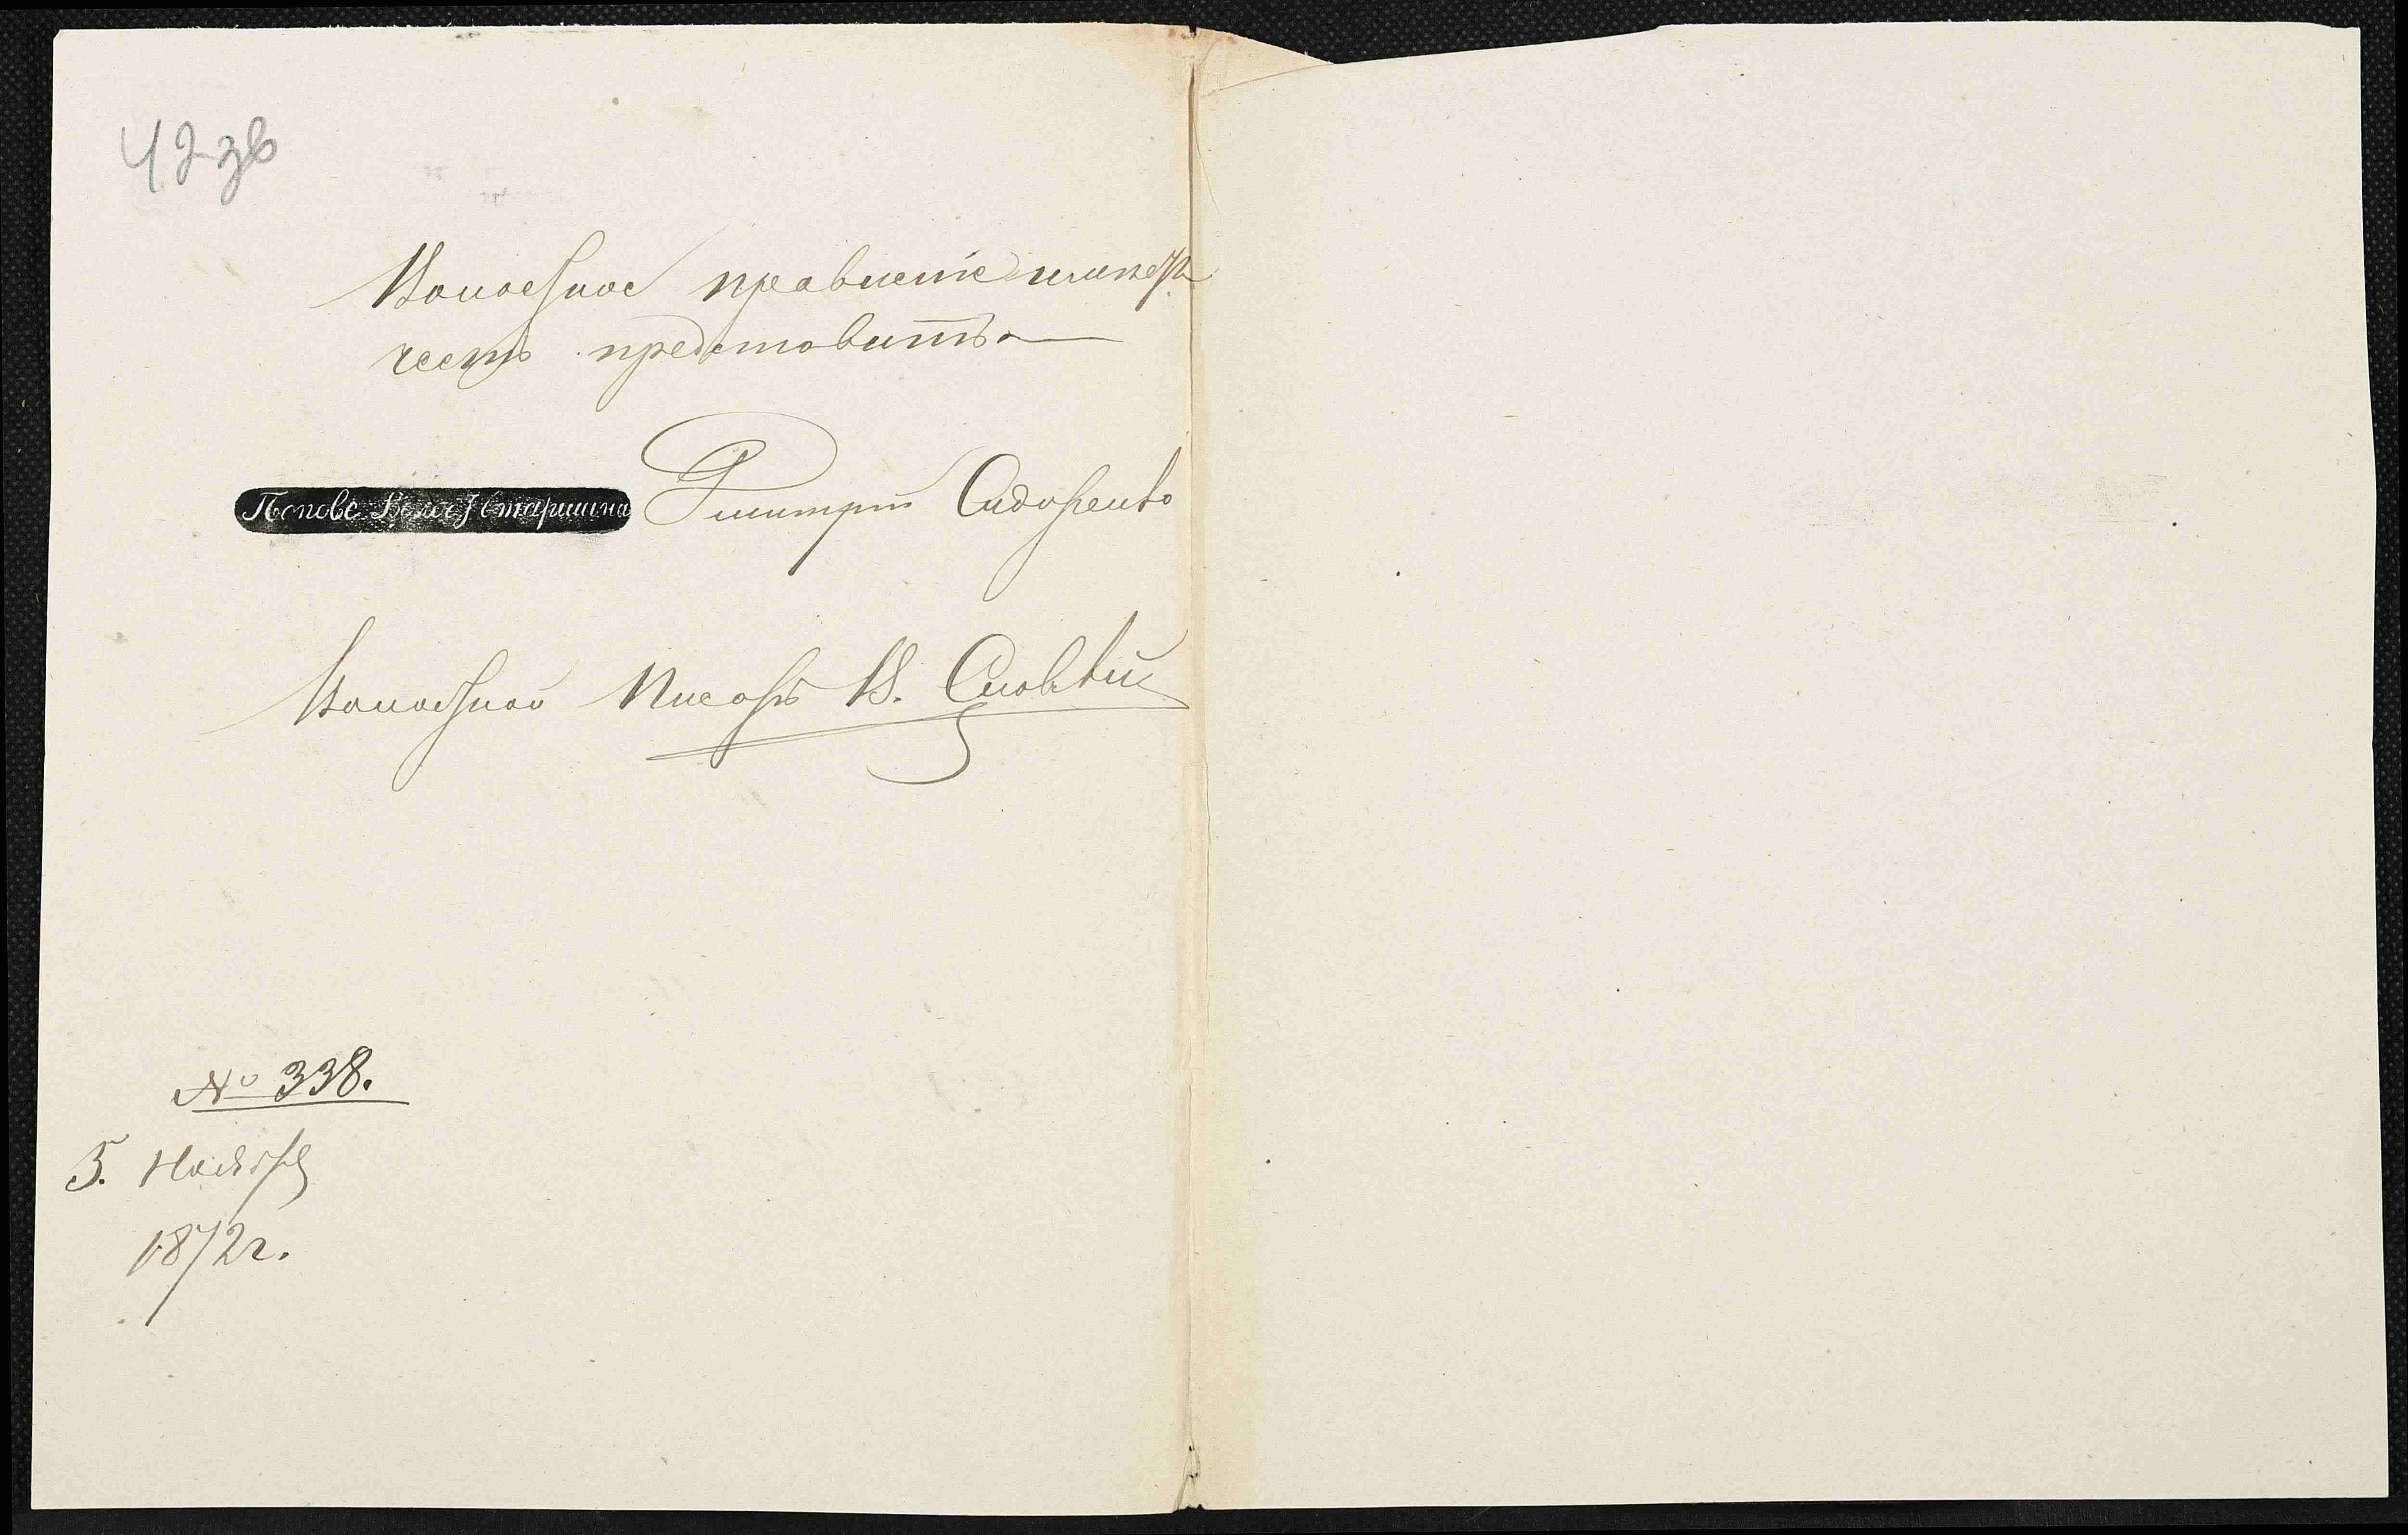 42 зв
Волостное правленіе имѣетъ
честь представить
Поповс. Волост. Старшина Дмитрій Сидоренко
Волостной Писарь В.
№ 338.
5. Ноября
1872 г.